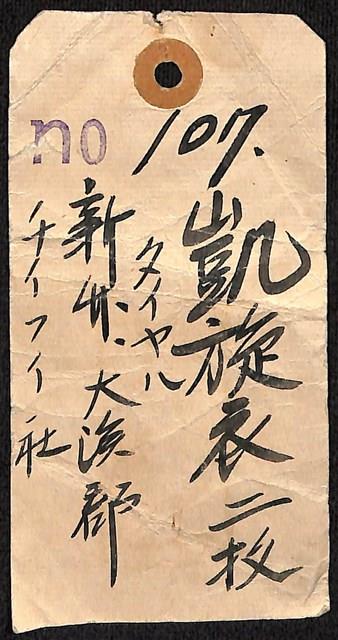 no
107.
凱旋衣二枚
タイヤル
新竹、大渓郡
チイフイ社